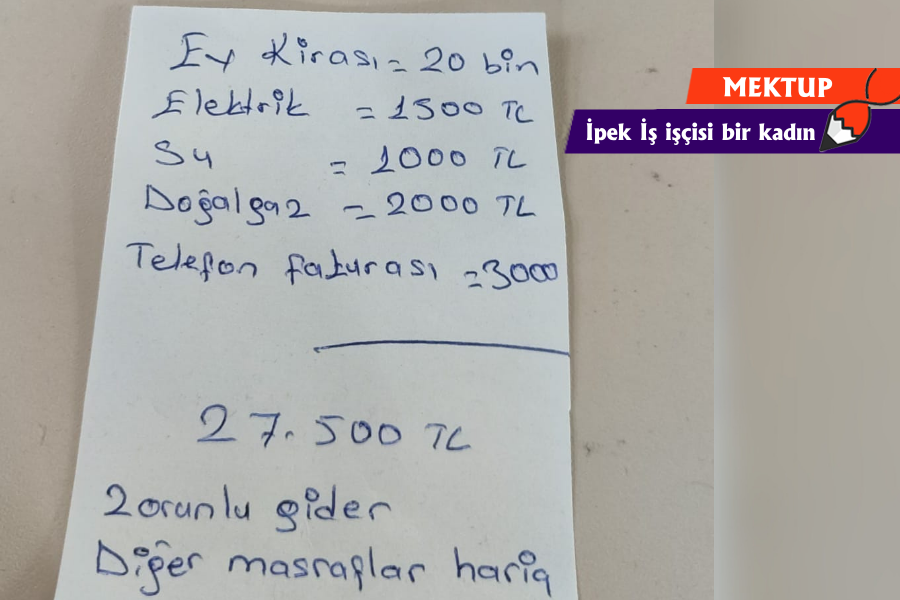 Ev Kirası = 20 bin
Elektrik = 1500 TL
Su = 1000 TL
Doğalgaz = 2000 TL
Telefon faturası = 3000
27.500 TL
Zorunlu gider
Diğer masraflar hariç
MEKTUP
İpek İş işçisi bir kadın